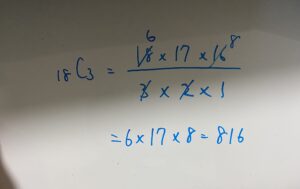 6
₁₈C₃ = 18 × 17 × 16 8
3 × 2 × 1
= 6 × 17 × 8 = 816